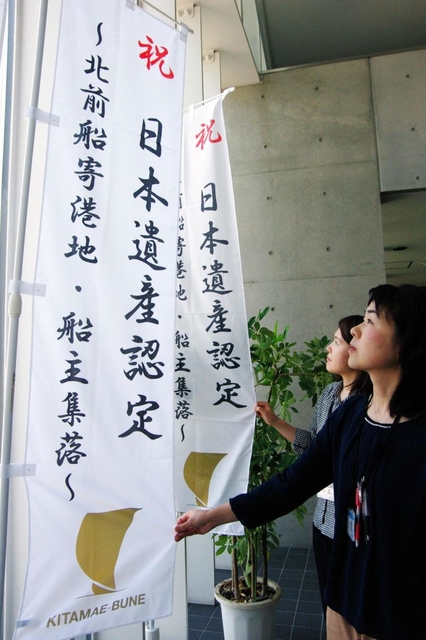 祝 日本遺産認定
～北前船寄港地・船主集落～
KITAMAE-BUNE
祝 日本遺産認定
前船寄港地・船主集落～